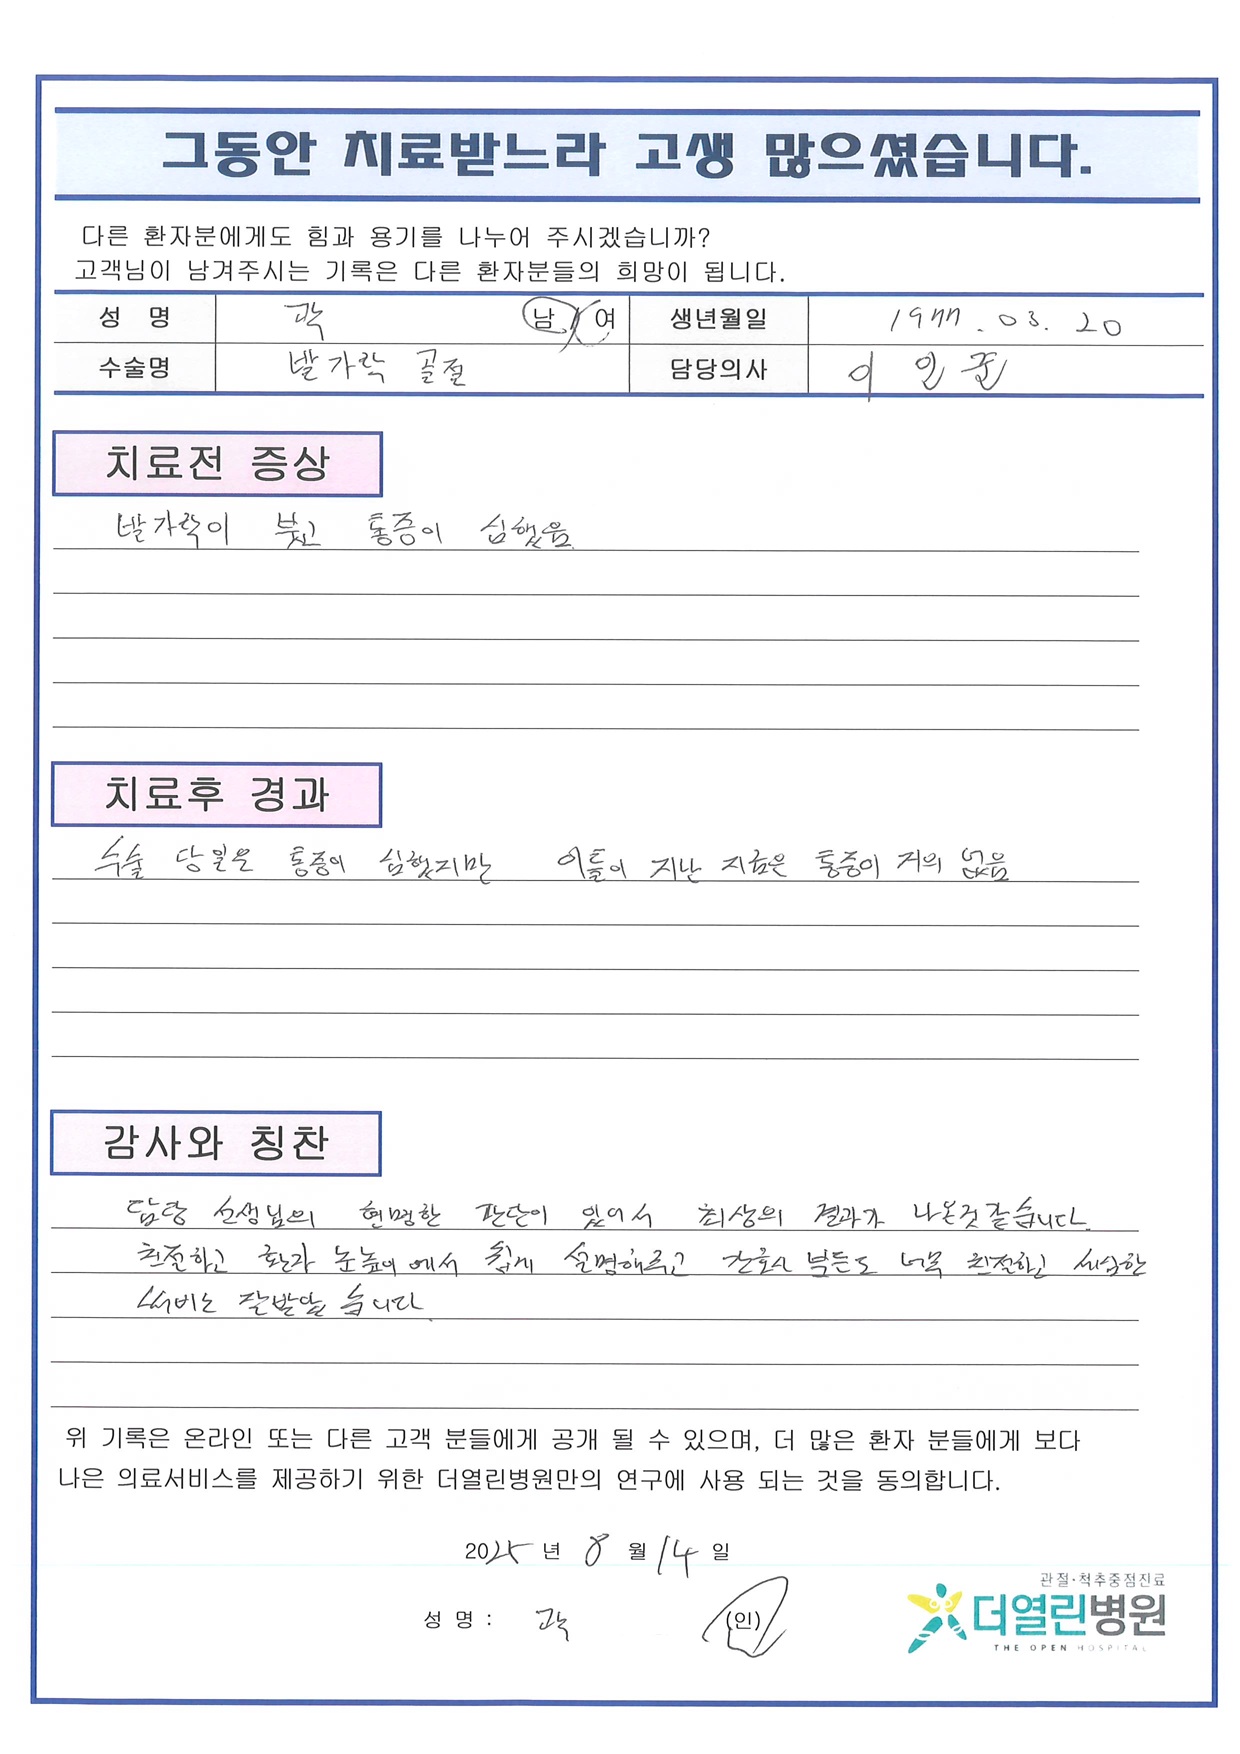 그동안 치료받느라 고생 많으셨습니다.
다른 환자분에게도 힘과 용기를 나누어 주시겠습니까?
고객님이 남겨주시는 기록은 다른 환자분들의 희망이 됩니다.
성 명 곽 남 / 여 생년월일 1977. 03. 20
수술명 발가락 골절 담당의사 이 인 준
치료전 증상
발가락이 붓고 통증이 심했음.
치료후 경과
수술 당일은 통증이 심했지만 이틀이 지난 지금은 통증이 거의 없음
감사와 칭찬
담당 선생님의 현명한 판단이 있어서 최상의 결과가 나온것 같습니다.
친절하고 환자 눈높이 에서 쉽게 설명해주고 간호사 분들도 너무 친절하고 세심한
써비스 잘받았습니다.
위 기록은 온라인 또는 다른 고객 분들에게 공개 될 수 있으며, 더 많은 환자 분들에게 보다
나은 의료서비스를 제공하기 위한 더열린병원만의 연구에 사용 되는 것을 동의합니다.
2025 년 8 월 14 일
성 명 : 곽 (인)
관절·척추중점진료
더열린병원
THE OPEN HOSPITAL